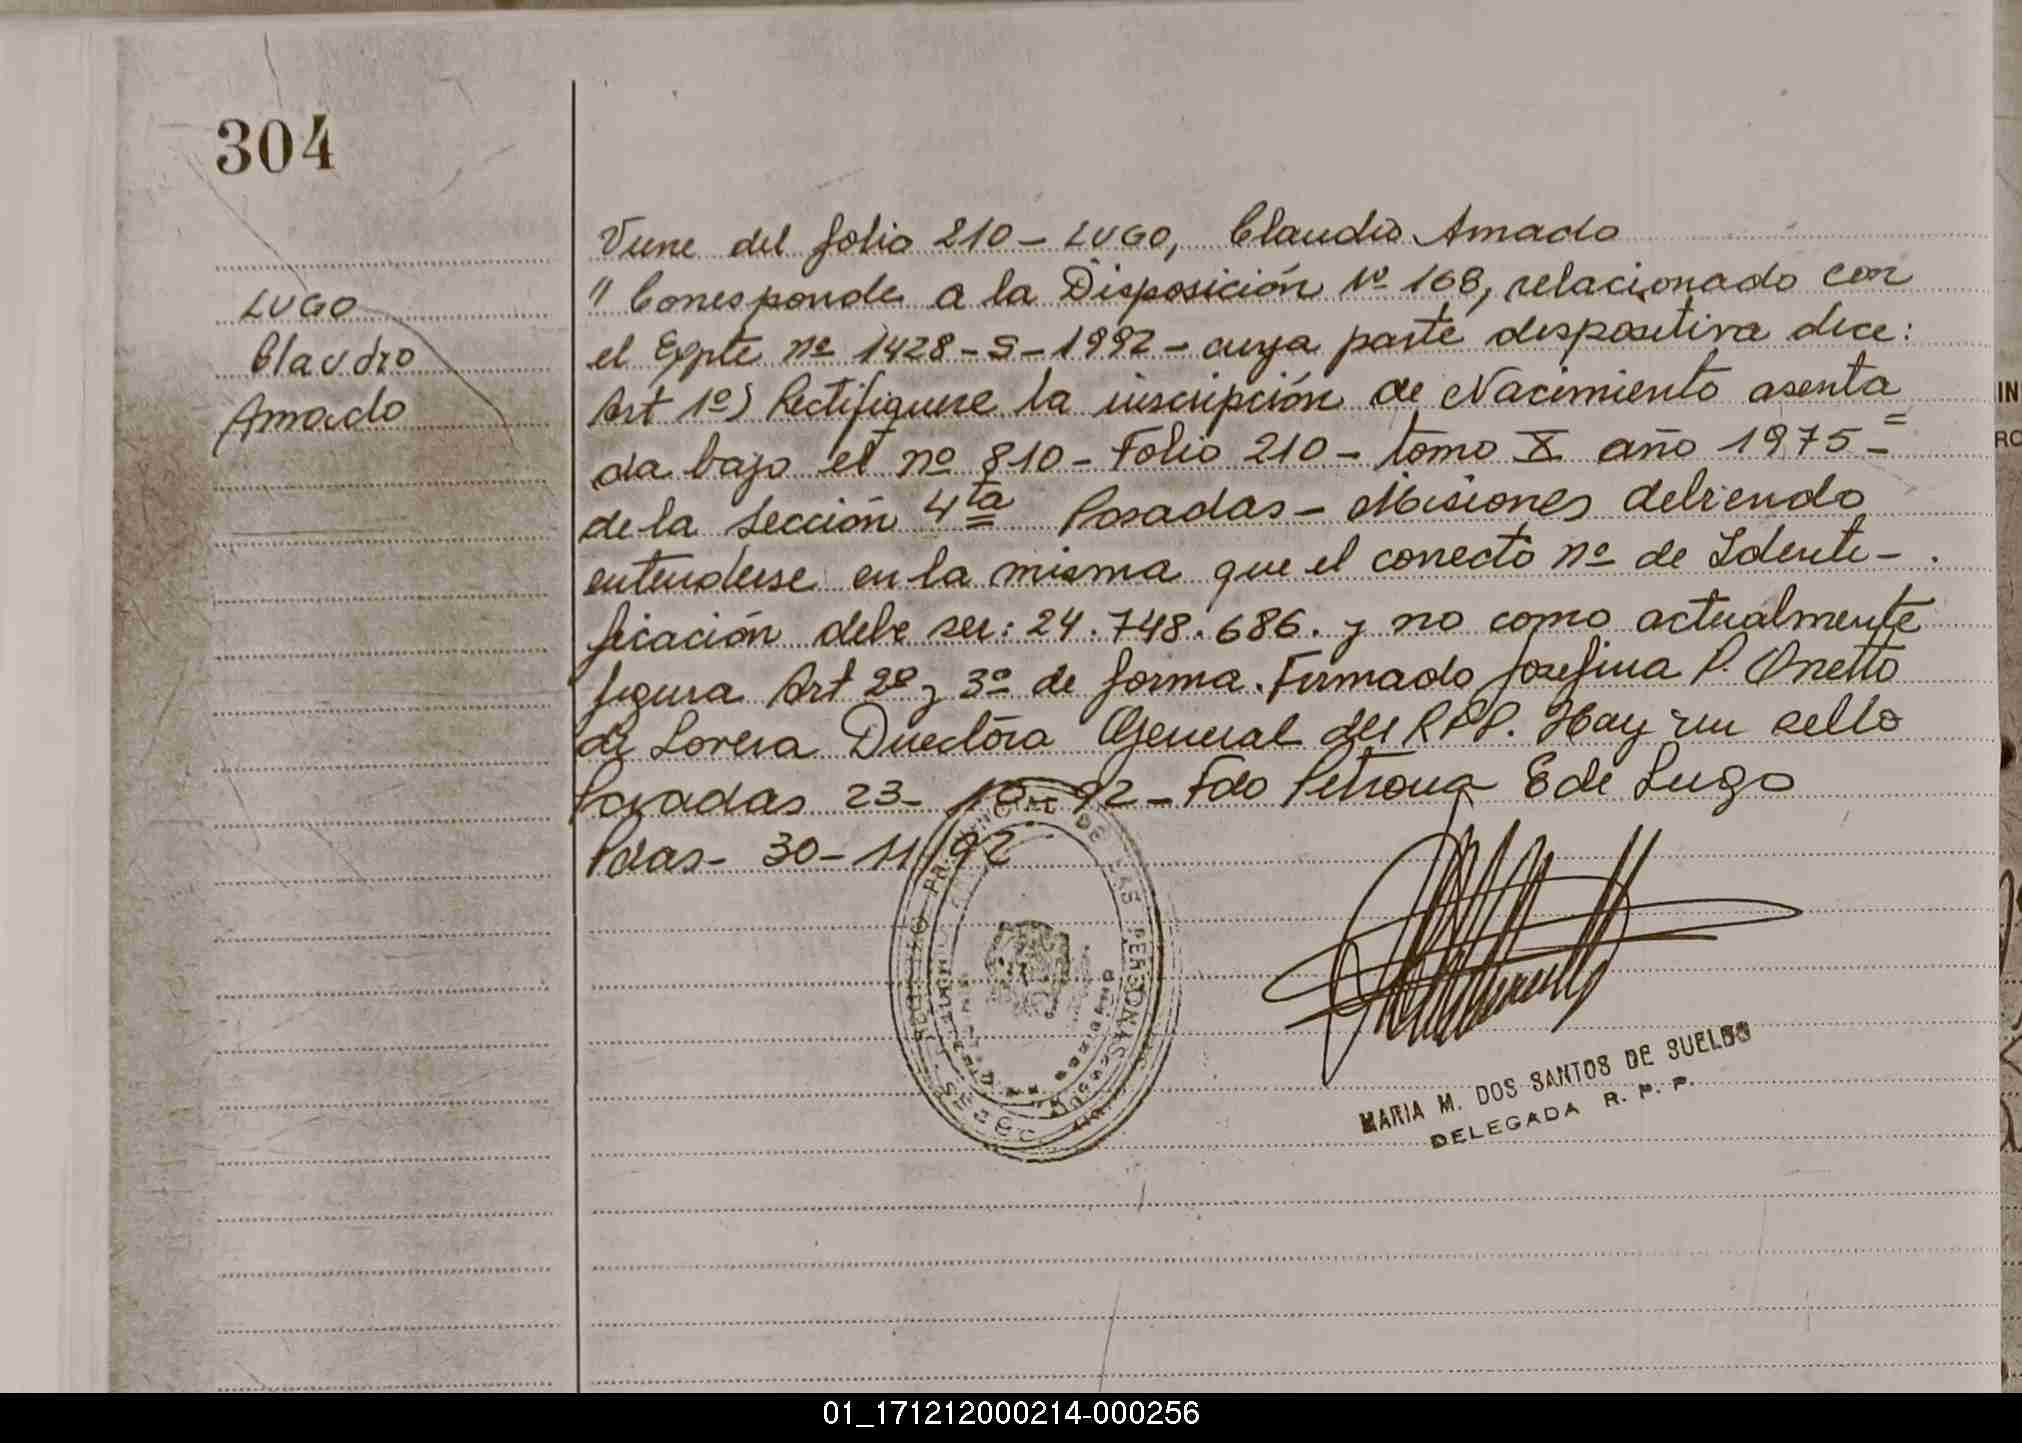 304
LUGO
Claudio
Amado
Viene del folio 210 - LUGO, Claudio Amado
" Corresponde a la Disposición Nº 168, relacionado con
el Expte nº 1428-S-1992 - cuya parte dispositiva dice:
Art 1º) Rectifiquese la inscripción de Nacimiento asenta
da bajo el nº 810 - Folio 210 - tomo X año 1975 =
de la Sección 4ta Posadas - Misiones debiendo
entenderse en la misma que el correcto nº de Identi-
ficación debe ser: 24.748.686. y no como actualmente
figura Art 2º y 3º de forma. Firmado Josefina P. Onetto
de Lovera Directora General del RPP. Hay un sello
Posadas 23-10-92 - Fdo Petrona E de Lugo
Pdas - 30-11/92
DE LAS PERSONAS
MARIA M. DOS SANTOS DE SUELDO
DELEGADA R. P. P.
IN
RO
01_171212000214-000256